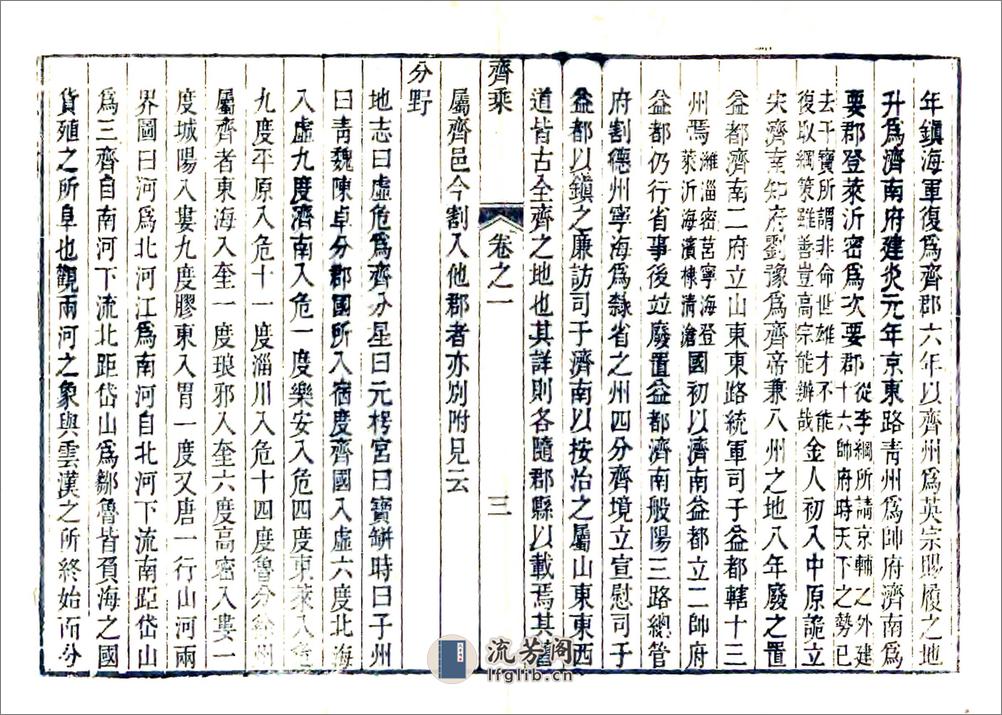 年鎭海軍復爲齊郡六年以齊州爲英宗賜履之地
升爲濟南府建炎元年京東路靑州爲帥府濟南爲
要郡登萊沂密爲次要郡從李綱所請京輔之外建十六帥府時天下之勢已
去平寶所謂非命世雄才不能復取綱策雖善豈高宗能辦哉金人初入中原詭立
宋濟南知府劉豫爲齊帝兼八州之地八年廢之置
益都濟南二府立山東東路統軍司于益都轄十三
州焉濰淄密莒寧海登萊沂海濱棣清滄國初以濟南益都立二帥府
益都仍行省事後竝廢置益都濟南般陽三路總管
府割德州寧海爲隸省之州四分齊境立宣慰司于
益都以鎭之廉訪司于濟南以按治之屬山東東西
道皆古全齊之地也其詳則各隨郡縣以載焉其
齊乘
卷之一
三
屬齊邑今割入他郡者亦別附見云
分野
地志曰虛危爲齊分星曰元枵宮曰寶缾時曰子州
曰靑魏陳卓分郡國所入宿度齊國入虛六度北海
入虛九度濟南入危一度樂安入危四度東萊入危
九度平原入危十一度淄川入危十四度魯分徐州
屬齊者東海入奎一度琅邪入奎六度高密入婁一
度城陽入婁九度膠東入胃一度又唐一行山河兩
界圖曰河爲北河江爲南河自北河下流南距岱山
爲三齊自南河下流北距岱山爲鄒魯皆負海之國
貨殖之所阜也觀兩河之象與雲漢之所終始而分
流芳阁
lfglib.cn